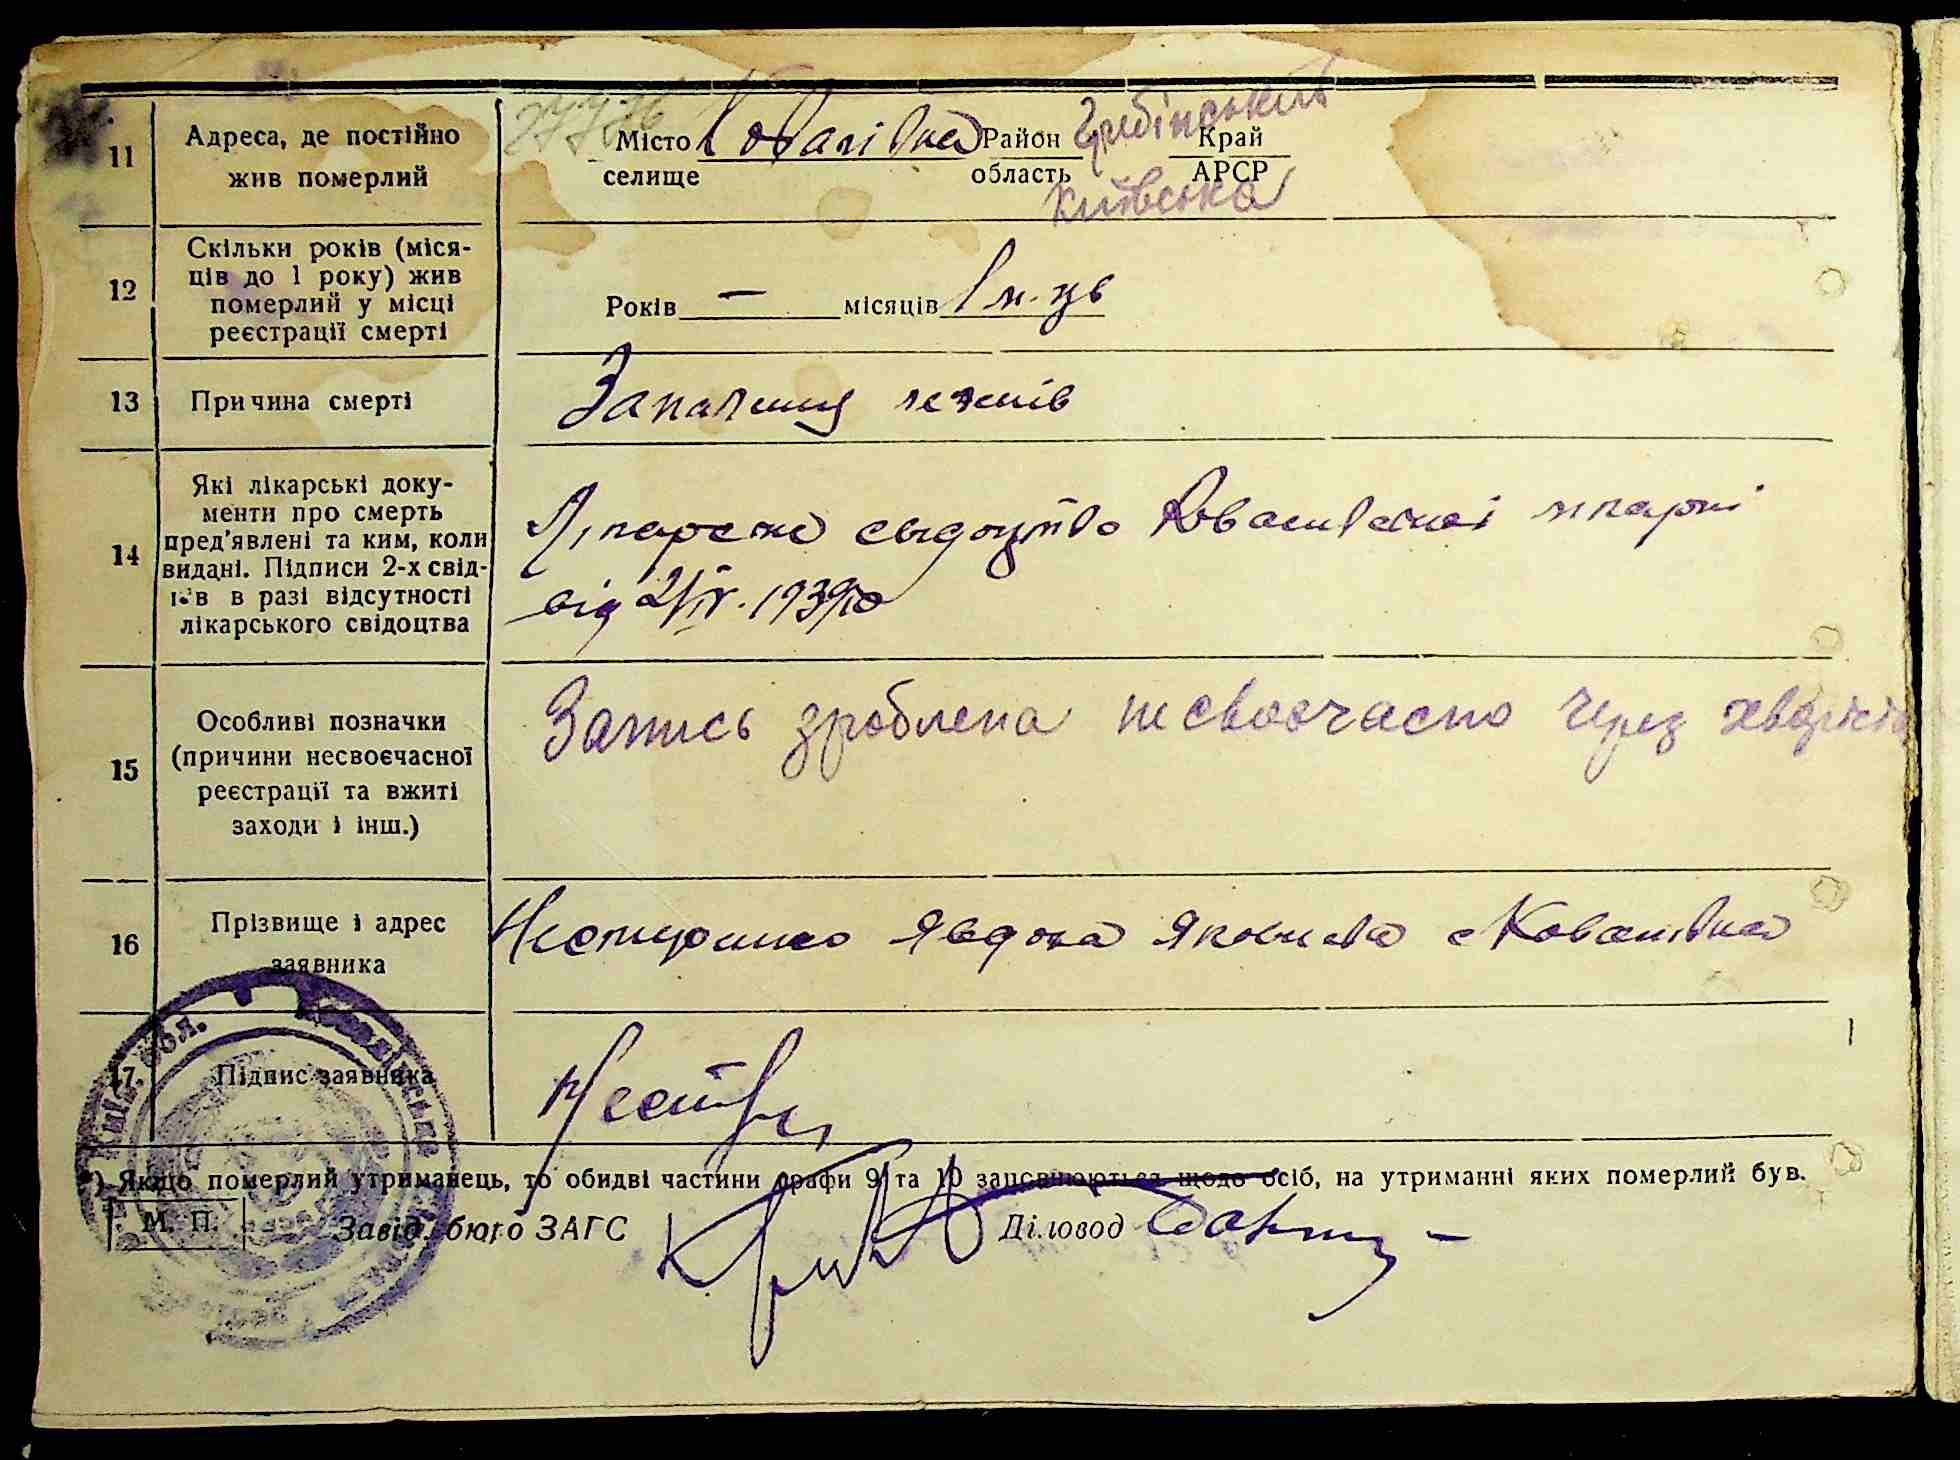 11 Адреса, де постійно
жив померлий
Місто Ковалівка Район Гребінський Край
селище область Київська АРСР
12 Скільки років (міся-
ців до 1 року) жив
померлий у місці
реєстрації смерті
Років — місяців 1 м-ць
13 Причина смерті
Запалення легенів
14 Які лікарські доку-
менти про смерть
пред'явлені та ким, коли
видані. Підписи 2-х свід-
ків в разі відсутності
лікарського свідоцтва
Лікарське свідоцтво Ковалівської лікарні
від 2/IV. 1939р
15 Особливі позначки
(причини несвоєчасної
реєстрації та вжиті
заходи і інш.)
Запись зроблена несвоєчасно через хворість
16 Прізвище і адрес
заявника
Нестеренко Явдоха Яковівна с Ковалівка
17. Підпис заявника
Нестер
*) Якщо померлий утриманець, то обидві частини графи 9 та 10 заповнюються щодо осіб, на утриманні яких померлий був.
М. П. Завід. бюро ЗАГС Діловод